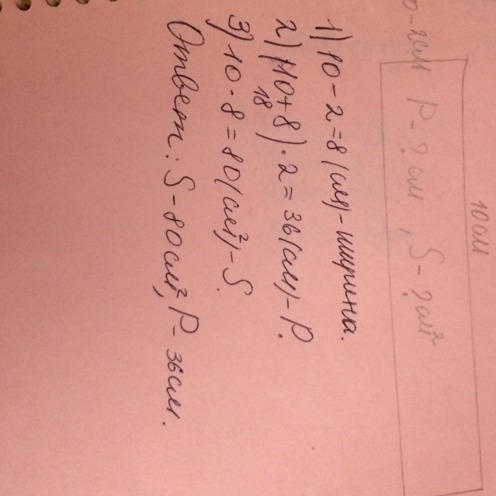 10см
10-2см P-? см, S-? см²
1) 10-2=8 (см)-ширина.
2) (10+8)·2=36(см)-P.
18
3) 10·8=80(см²)-S.
Ответ: S-80см², P-36см.